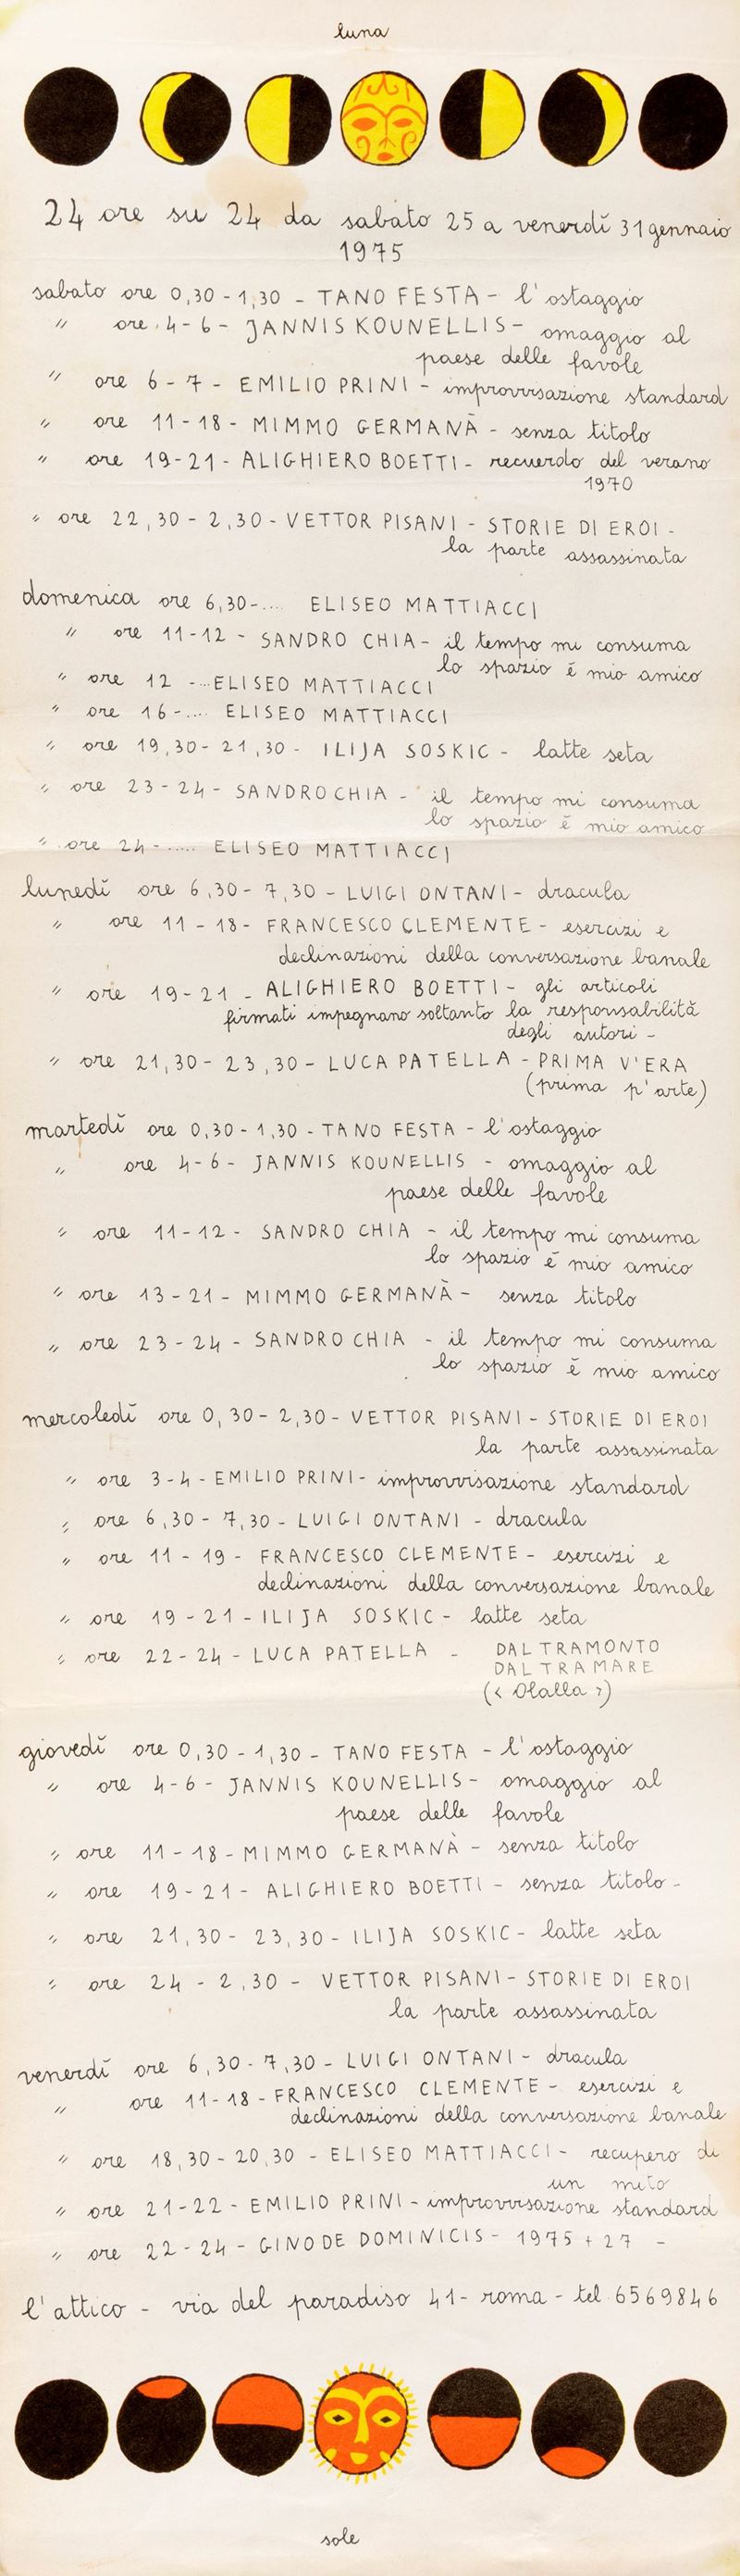 luna
24 ore su 24 da sabato 25 a venerdí 31 gennaio
1975
sabato ore 0,30 - 1,30 - TANO FESTA - l'ostaggio
" ore 4 - 6 - JANNIS KOUNELLIS - omaggio al
paese delle favole
" ore 6 - 7 - EMILIO PRINI - improvvisazione standard
" ore 11 - 18 - MIMMO GERMANÀ - senza titolo
" ore 19 - 21 - ALIGHIERO BOETTI - recuerdo del verano
1970
" ore 22,30 - 2,30 - VETTOR PISANI - STORIE DI EROI -
la parte assassinata
domenica ore 6,30 - .... ELISEO MATTIACCI
" ore 11 - 12 - SANDRO CHIA - il tempo mi consuma
lo spazio è mio amico
" ore 12 - ... ELISEO MATTIACCI
" ore 16 - .... ELISEO MATTIACCI
" ore 19,30 - 21,30 - ILIJA SOSKIC - latte seta
" ore 23 - 24 - SANDRO CHIA - il tempo mi consuma
lo spazio è mio amico
" ore 24 - ..... ELISEO MATTIACCI
lunedí ore 6,30 - 7,30 - LUIGI ONTANI - dracula
" ore 11 - 18 - FRANCESCO CLEMENTE - esercizi e
declinazioni della conversazione banale
" ore 19 - 21 - ALIGHIERO BOETTI - gli articoli
firmati impegnano soltanto la responsabilità
degli autori -
" ore 21,30 - 23,30 - LUCA PATELLA - PRIMA V'ERA
(prima p'arte)
martedí ore 0,30 - 1,30 - TANO FESTA - l'ostaggio
" ore 4 - 6 - JANNIS KOUNELLIS - omaggio al
paese delle favole
" ore 11 - 12 - SANDRO CHIA - il tempo mi consuma
lo spazio è mio amico
" ore 13 - 21 - MIMMO GERMANÀ - senza titolo
" ore 23 - 24 - SANDRO CHIA - il tempo mi consuma
lo spazio è mio amico
mercoledí ore 0,30 - 2,30 - VETTOR PISANI - STORIE DI EROI
la parte assassinata
" ore 3 - 4 - EMILIO PRINI - improvvisazione standard
" ore 6,30 - 7,30 - LUIGI ONTANI - dracula
" ore 11 - 19 - FRANCESCO CLEMENTE - esercizi e
declinazioni della conversazione banale
" ore 19 - 21 - ILIJA SOSKIC - latte seta
" ore 22 - 24 - LUCA PATELLA - DAL TRAMONTO
DAL TRA MARE
(< Olalla >)
giovedí ore 0,30 - 1,30 - TANO FESTA - l'ostaggio
" ore 4 - 6 - JANNIS KOUNELLIS - omaggio al
paese delle favole
" ore 11 - 18 - MIMMO GERMANÀ - senza titolo
" ore 19 - 21 - ALIGHIERO BOETTI - senza titolo -
" ore 21,30 - 23,30 - ILIJA SOSKIC - latte seta
" ore 24 - 2,30 - VETTOR PISANI - STORIE DI EROI
la parte assassinata
venerdí ore 6,30 - 7,30 - LUIGI ONTANI - dracula
" ore 11 - 18 - FRANCESCO CLEMENTE - esercizi e
declinazioni della conversazione banale
" ore 18,30 - 20,30 - ELISEO MATTIACCI - recupero di
un mito
" ore 21 - 22 - EMILIO PRINI - improvvisazione standard
" ore 22 - 24 - GINO DE DOMINICIS - 1975 + 27 -
l'attico - via del paradiso 41 - roma - tel. 6569846
sole